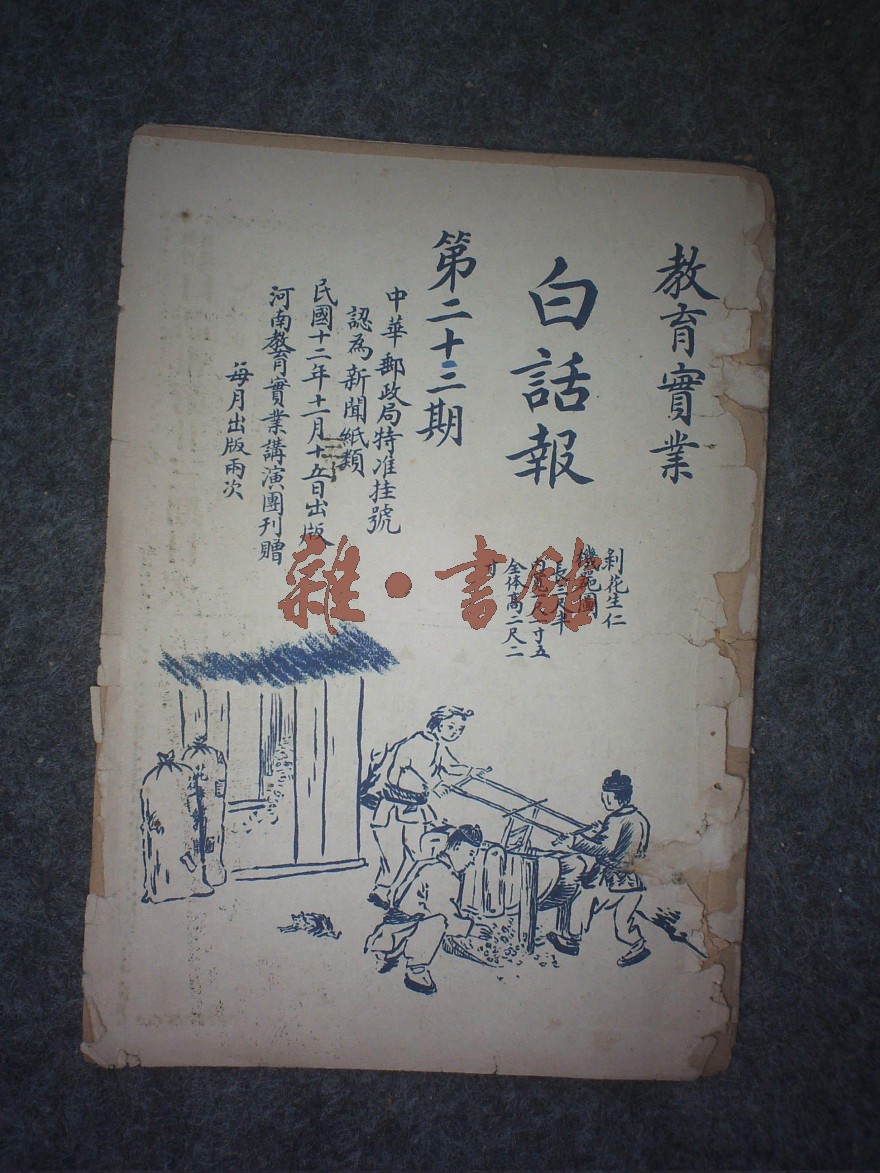 教育實業
白話報
第二十三期
中華郵政局特准挂號
認為新聞紙類
民國十二年十一月十五日出版
河南教育實業講演團刊贈
每月出版兩次
剥花生仁
機範圖
長二尺半
寸五
全体高二尺二
寸
雜·書館
花生